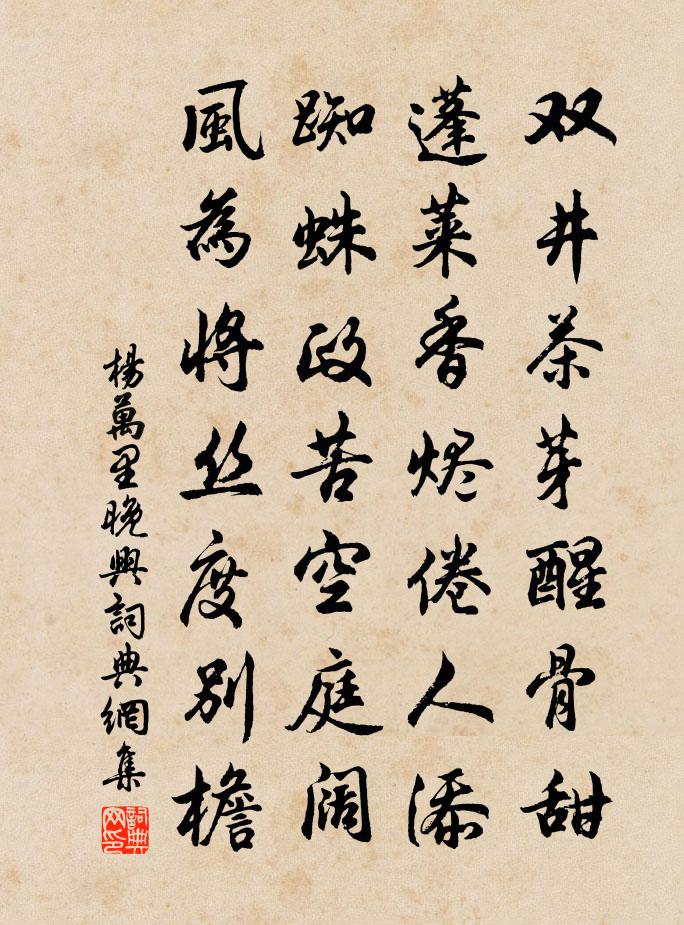 双井茶芽醒骨甜
蓬莱香烬倦人添
蜘蛛政苦空庭阔
風為將丝度别檐
楊萬里晚興詞典網集
詞典网印